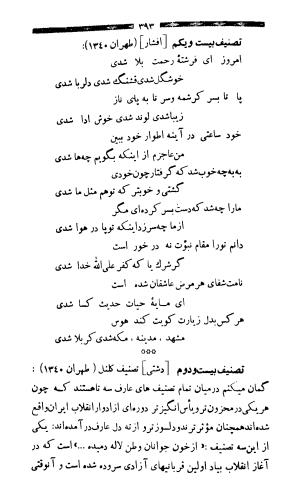 ۳۹۳
تصنیف بیست ویکم [افشار] (طهران ۱۳۴۰):
امروز ای فرشتهٔ رحمت بلا شدی
خوشگل شدی قشنگ شدی دلربا شدی
پا تا بسر کرشمه وسر تا به پای ناز
زیبا شدی لوند شدی خوش ادا شدی
خود ساعتی در آینه اطوار خود ببین
من عاجزم از اینکه بگویم چه‌ها شدی
به به چه خوب شد که گرفتار چون خودی
گشتی و خوبتر که توهم مثل ما شدی
مارا چه شد که دست بسر کرده‌ای مگر
از ما چه سرزد اینکه تو پا در هوا شدی
دانم ترا مقام نبوّت نه در خور است
گر شرك یا که کفر علی‌الله خدا شدی
نامت شفای هر مرض عاشقان شده است
ای مایهٔ حیات حدیث کسا شدی
هر کس بدل زیارت کویت کند هوس
مشهد، مدینه، مکه شدی کربلا شدی
***
تصنیف بیست و دوم [دشتی] تصنیف کلنل (طهران ۱۳۴۰):
گمان میکنم درمیان تمام تصنیف های عارف سه تا هستند که چون
هریکی در محزون‌تر و یأس انگیزتر دوره‌ای از ادوار انقلاب ایران واقع
شده‌اند همچنان مؤثرتر و دلسوزتر و از ته دل عارف در آمده‌اند: یکی
از این سه تصنیف: «از خون جوانان وطن لاله دمیده ...» است که در
آغاز انقلاب بیاد اولین قربانیهای آزادی سروده شده است و آنوقتی